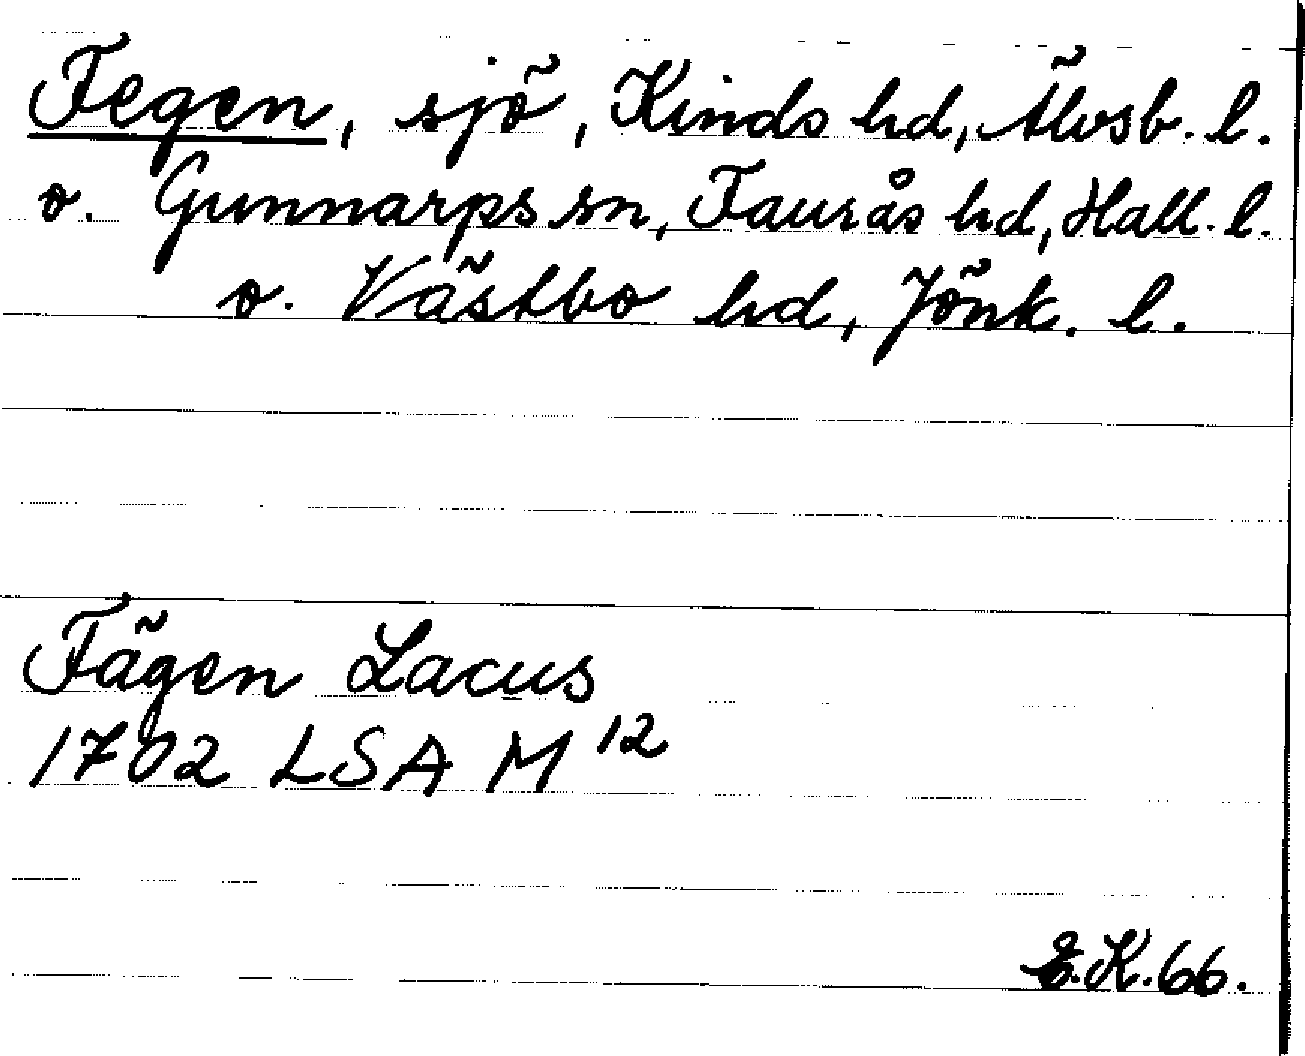 Fegen, sjö, Kinds hd, Älvsb. l.
o. Gunnarps sn, Faurås hd, Hall. l.
o. Västbo hd, Jönk. l.
Fägen Lacus
1702 LSA M 12
E.K. 66.